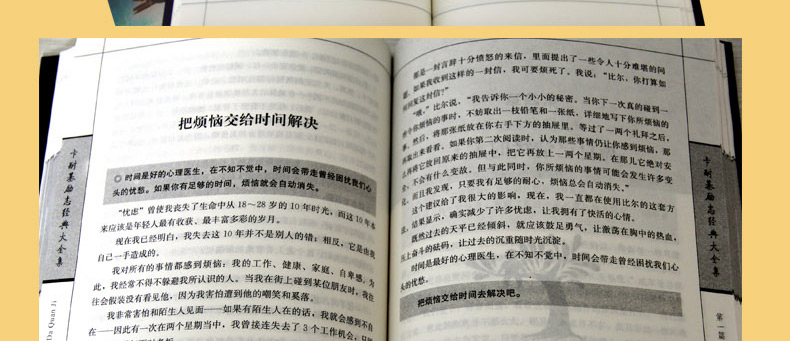 把烦恼交给时间解决
◎ 时间是最好的心理医生，在不知不觉中，时间会带走曾经困扰我们心
头的忧愁。如果你有足够的时间，烦恼就会自动消失。
“忧虑”曾使我丧失了生命中从18～28岁的10年时光，而这10年本
来应该是年轻人最有收获、最丰富多彩的岁月。
现在我已经明白，我失去这10年并不是别人的错；相反，它是由我
自己一手造成的。
我对所有的事情都感到烦恼：我的工作、健康、家庭、自卑感。为
此，我经常不得不躲避我所认识的人。当我在街上碰到某位朋友时，我往
往会假装没有看见他，因为我害怕遭到他的嘲笑和奚落。
我非常害怕和陌生人见面——如果有陌生人在的话，我就会感到不自
在——因此有一次在两个星期当中，我曾接连失去了3个工作机会，只
卡耐基励志经典大全集
Da Quan Ji
那是一封言辞十分愤怒的来信，里面提出了一些令人十分难堪的问
题。如果我收到这样的一封信，我可要烦死了。我说：“比尔，你打算如
何回复这封信？”
“哦，”比尔说，“我告诉你一个小小的秘密。当你下一次真的碰到一
些令你烦恼的事时，不妨取出一枝铅笔和一张纸，详细地写下你所烦恼的
事。然后，将那张纸放在你右手下方的抽屉里。等过了一两个礼拜之后，
再取出来看看。如果你第二次阅读时，认为那些事情仍让你感到烦恼，那
么再将它放回原来的抽屉中，把它再放上一两个星期。在那儿它绝对安
全，不会有什么变故。但与此同时，你所烦恼的事情可能会发生许多变
化。而且我发现，只要我有足够的耐心，烦恼总会自动消失。”
这个建议给了我很大的影响，现在，我一直都在使用比尔的这套方
法。结果显示，确实减少了许多忧虑，让我拥有了快活的心情。
既然过去的天平已经倾斜，就应该鼓足勇气，让激荡在胸中的热血，
压上奋斗的砝码，让过去的沉重随时光沉淀。
时间是最好的心理医生，在不知不觉中，时间会带走曾经困扰我们心
头的忧愁。
把烦恼交给时间去解决吧。
卡耐基励志经典大全集
第一篇